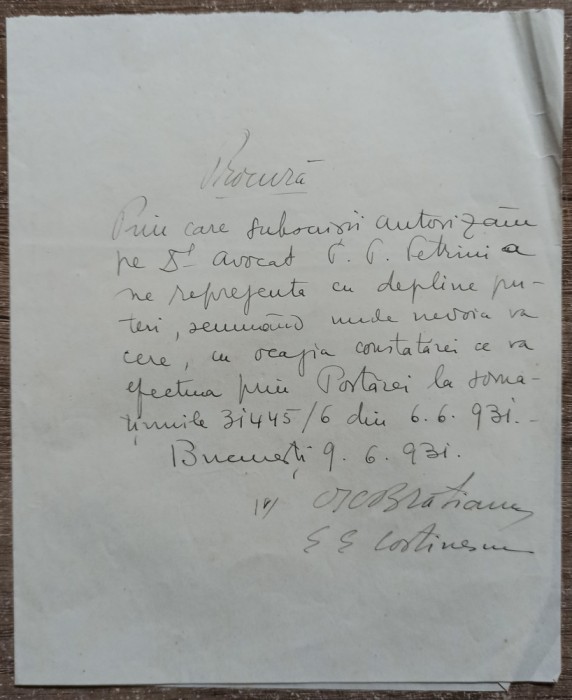 Procură
Prin care subscrișii autorizăm
pe Dl avocat P. P. Petrini a
ne reprezenta cu depline pu-
teri, semnând unde nevoia va
cere, cu ocazia constatărei ce va
efectua prin Portărei la soma-
țiunile 31445/6 din 6.6.931.-
București 9.6.931.
CIC Brătianu
E E Costinescu